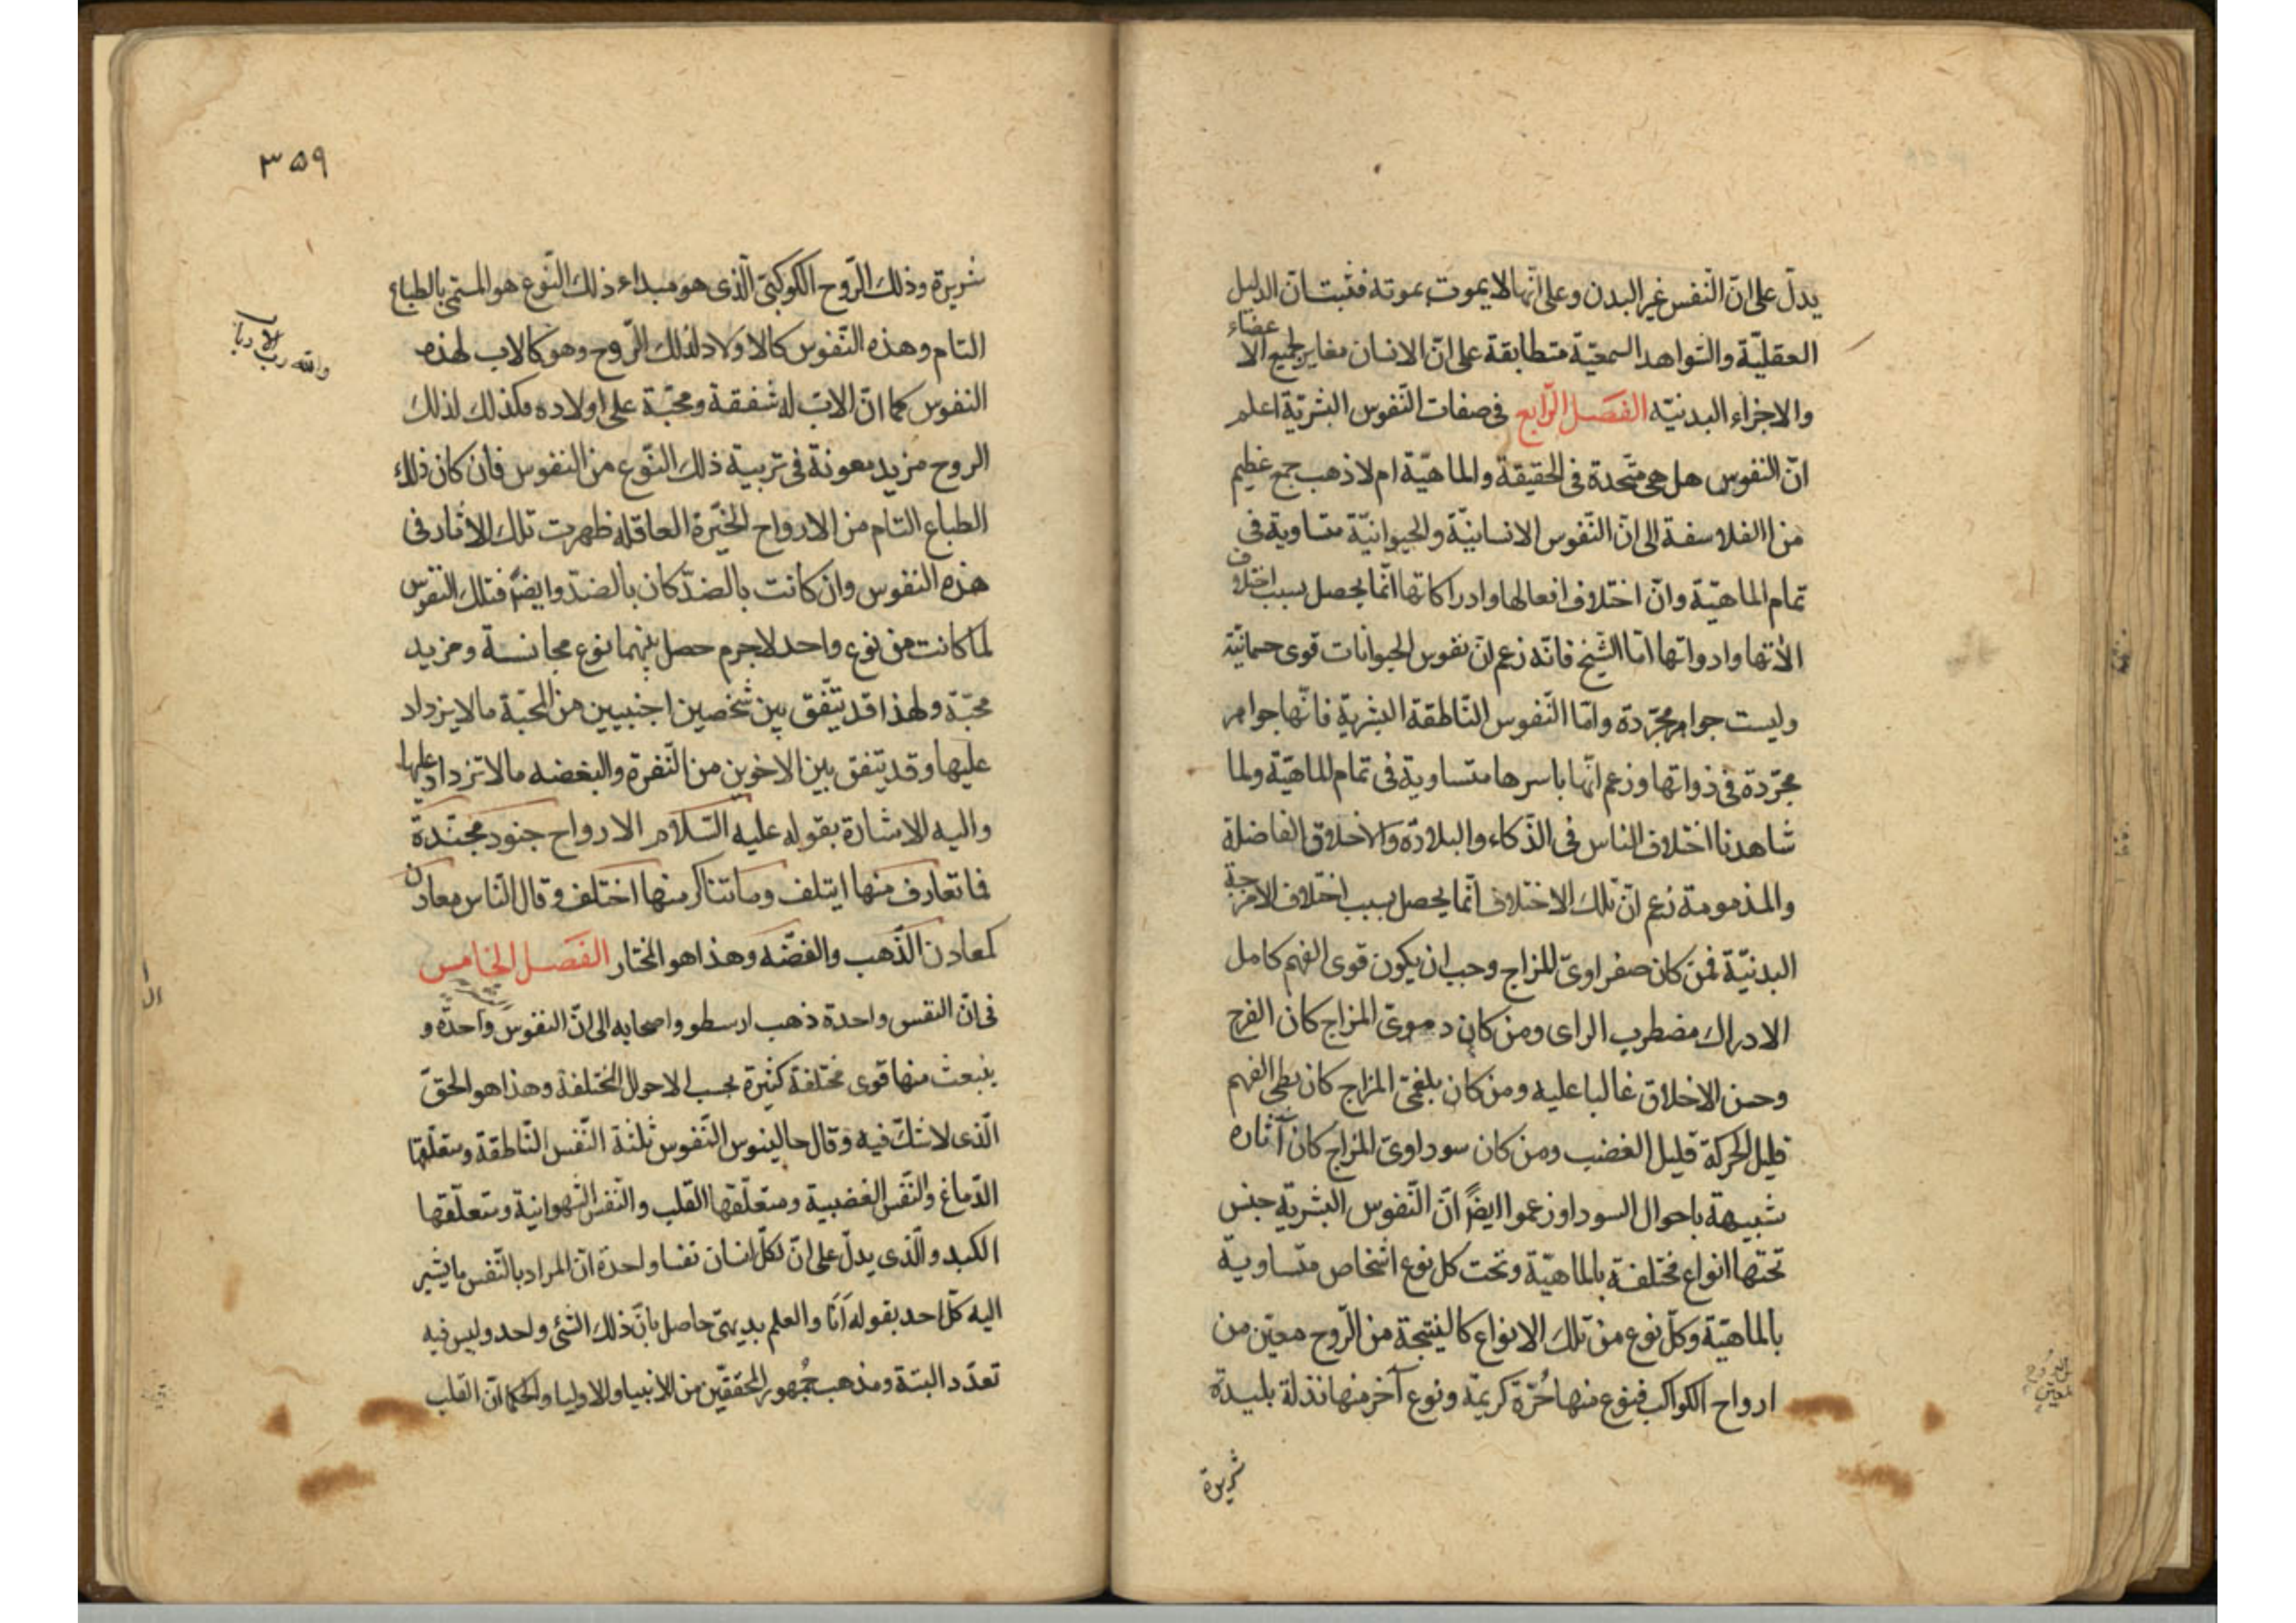 يدلّ على انّ النّفس غير البدن وعلى انّها لا يموت بموته فثبت انّ الدليل
العقليّة والشواهد السمعيّة متطابقة على انّ الانسان مغاير لجميع الاعضاء
والاجزاء البدنيّه الفصل الرّابع فى صفات النّفوس البشريّة اعلم
انّ النفوس هل هى متّحدة فى الحقيقة والماهيّة ام لا ذهب جمع عظيم
من الفلاسفة الى انّ النّفوس الانسانيّة والحيوانيّة متساوية فى
تمام الماهيّة وانّ اختلاف افعالها وادراكاتها انّما يحصل بسبب اختلاف
الآتها وادواتها امّا الشّيخ فانّه زعم انّ نفوس الحيوانات قوى جسمانيّة
وليست جواهر مجرّدة وامّا النّفوس النّاطقة البشرية فانّها جواهر
مجرّدة فى ذواتها وزعم انّها باسرها متساوية فى تمام الماهيّة ولما
شاهدنا اختلاف الناس فى الذّكاء والبلادّة والاخلاق الفاضلة
والمذمومة زعم انّ تلك الاختلاف انّما يحصل بسبب اختلاف الامزجة
البدنيّة فمن كان صفراوىّ المزاج وجب ان يكون قوى الفهم كامل
الادراك مضطرب الراى ومن كان دموىّ المزاج كان الفرح
وحسن الاخلاق غالبا عليه ومن كان بلغمىّ المزاج كان بطى الفهم
قليل الحركة قليل الغضب ومن كان سوداوىّ المزاج كان آثاره
شبيهة باحوال السودا وزعموا ايضاً انّ النّفوس البشريّة جنس
تحتها انواع مختلفة بالماهيّة وتحت كل نوع اشخاص متساوية
بالماهيّة وكلّ نوع من تلك الانواع كالنتيجة من الرّوح معيّن من
ارواح الكواكب فنوع منها حُرّة كريمة ونوع آخر منها نذلة بليدة
شريرة
٣٥٩
شريرة وذلك الرّوح الكوكبىّ الّذى هو مبداء ذلك النّوع هو المسمّى بالطباع
التام وهذه النّفوس كالاولاد لذلك الرّوح وهو كالاب لهذه
النفوس كما انّ الاب له شفقة ومحبّة على اولاده فكذلك لذلك
الروح مزيد معونة فى تربية ذلك النّوع من النفوس فان كان ذلك
الطباع التام من الارواح الخيّرة العاقلة ظهرت تلك الاثار فى
هذه النفوس وان كانت بالضدّ كان بالضدّ وايضاً فتلك النفوس
لما كانت من نوع واحد لاجرم حصل بينهما نوع مجانسة ومزيد
محبّة ولهذا قد يتّفق بين شخصين اجنبيين من المحبّة ما لا يزداد
عليها وقد يتفق بين الاخوين من النّفرة والبغضه ما لا تزداد عليها
واليه الاشارة بقوله عليه السّلام الارواح جنود مجنّدة
فما تعارف منها ايتلف وما تناكر منها اختلف وقال النّاس معادن
كمعادن الذّهب والفضّه وهذا هو المختار الفصل الخامس
فى انّ النفس واحدة ذهب ارسطو واصحابه الى انّ النفوس واحدة و
ينبعث منها قوى مختلفة كثيرة بحسب الاحوال المختلفة وهذا هو الحقّ
الّذى لا شكّ فيه وقال جالينوس النّفوس ثلثة النّفس النّاطقة ومتعلّقها
الدّماغ والنّفس الغضبية ومتعلّقها القلب والنّفس الشهوانيّة ومتعلّقها
الكبد والّذى يدلّ على انّ لكلّ انسان نفسا واحدة انّ المراد بالنّفس ما يشير
اليه كلّ احد بقوله اَنَا والعلم بديهىّ حاصل بانّ ذلك الشئ واحد وليس فيه
تعدّد البتّة ومذهب جُمهور المحقّقين من الانبيا والاوليا والحكما انّ القلب